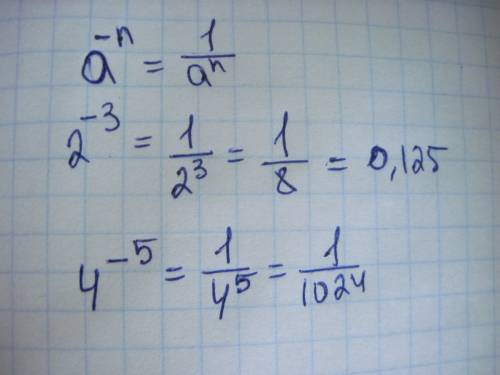 a⁻ⁿ = 1/aⁿ
2⁻³ = 1/2³ = 1/8 = 0,125
4⁻⁵ = 1/4⁵ = 1/1024